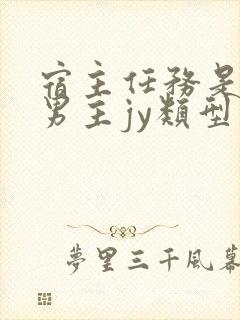 宿主任務是
男主jy類型
夢里三千風幕